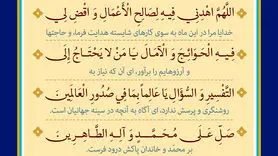 اللَّهُمَّ اهْدِنِي فِيهِ لِصَالِحِ الْأَعْمَالِ وَ اقْضِ لِي
خدایا مرا در این ماه به سوی کارهای شایسته هدایت فرما، و حاجتها
فِيهِ الْحَوَائِجَ وَ الْآمَالَ يَا مَنْ لَا يَحْتَاجُ إِلَى
و آرزوهایم را برآور، ای آن که نیاز به
التَّفْسِيرِ وَ السُّؤَالِ يَا عَالِماً بِمَا فِي صُدُورِ الْعَالَمِينَ
روشنگری و پرسش ندارد، ای آگاه به آنچه در سینه جهانیان است.
صَلِّ عَلَى مُحَمَّدٍ وَ آلِهِ الطَّاهِرِينَ
بر محمّد و خاندان پاکش درود فرست.